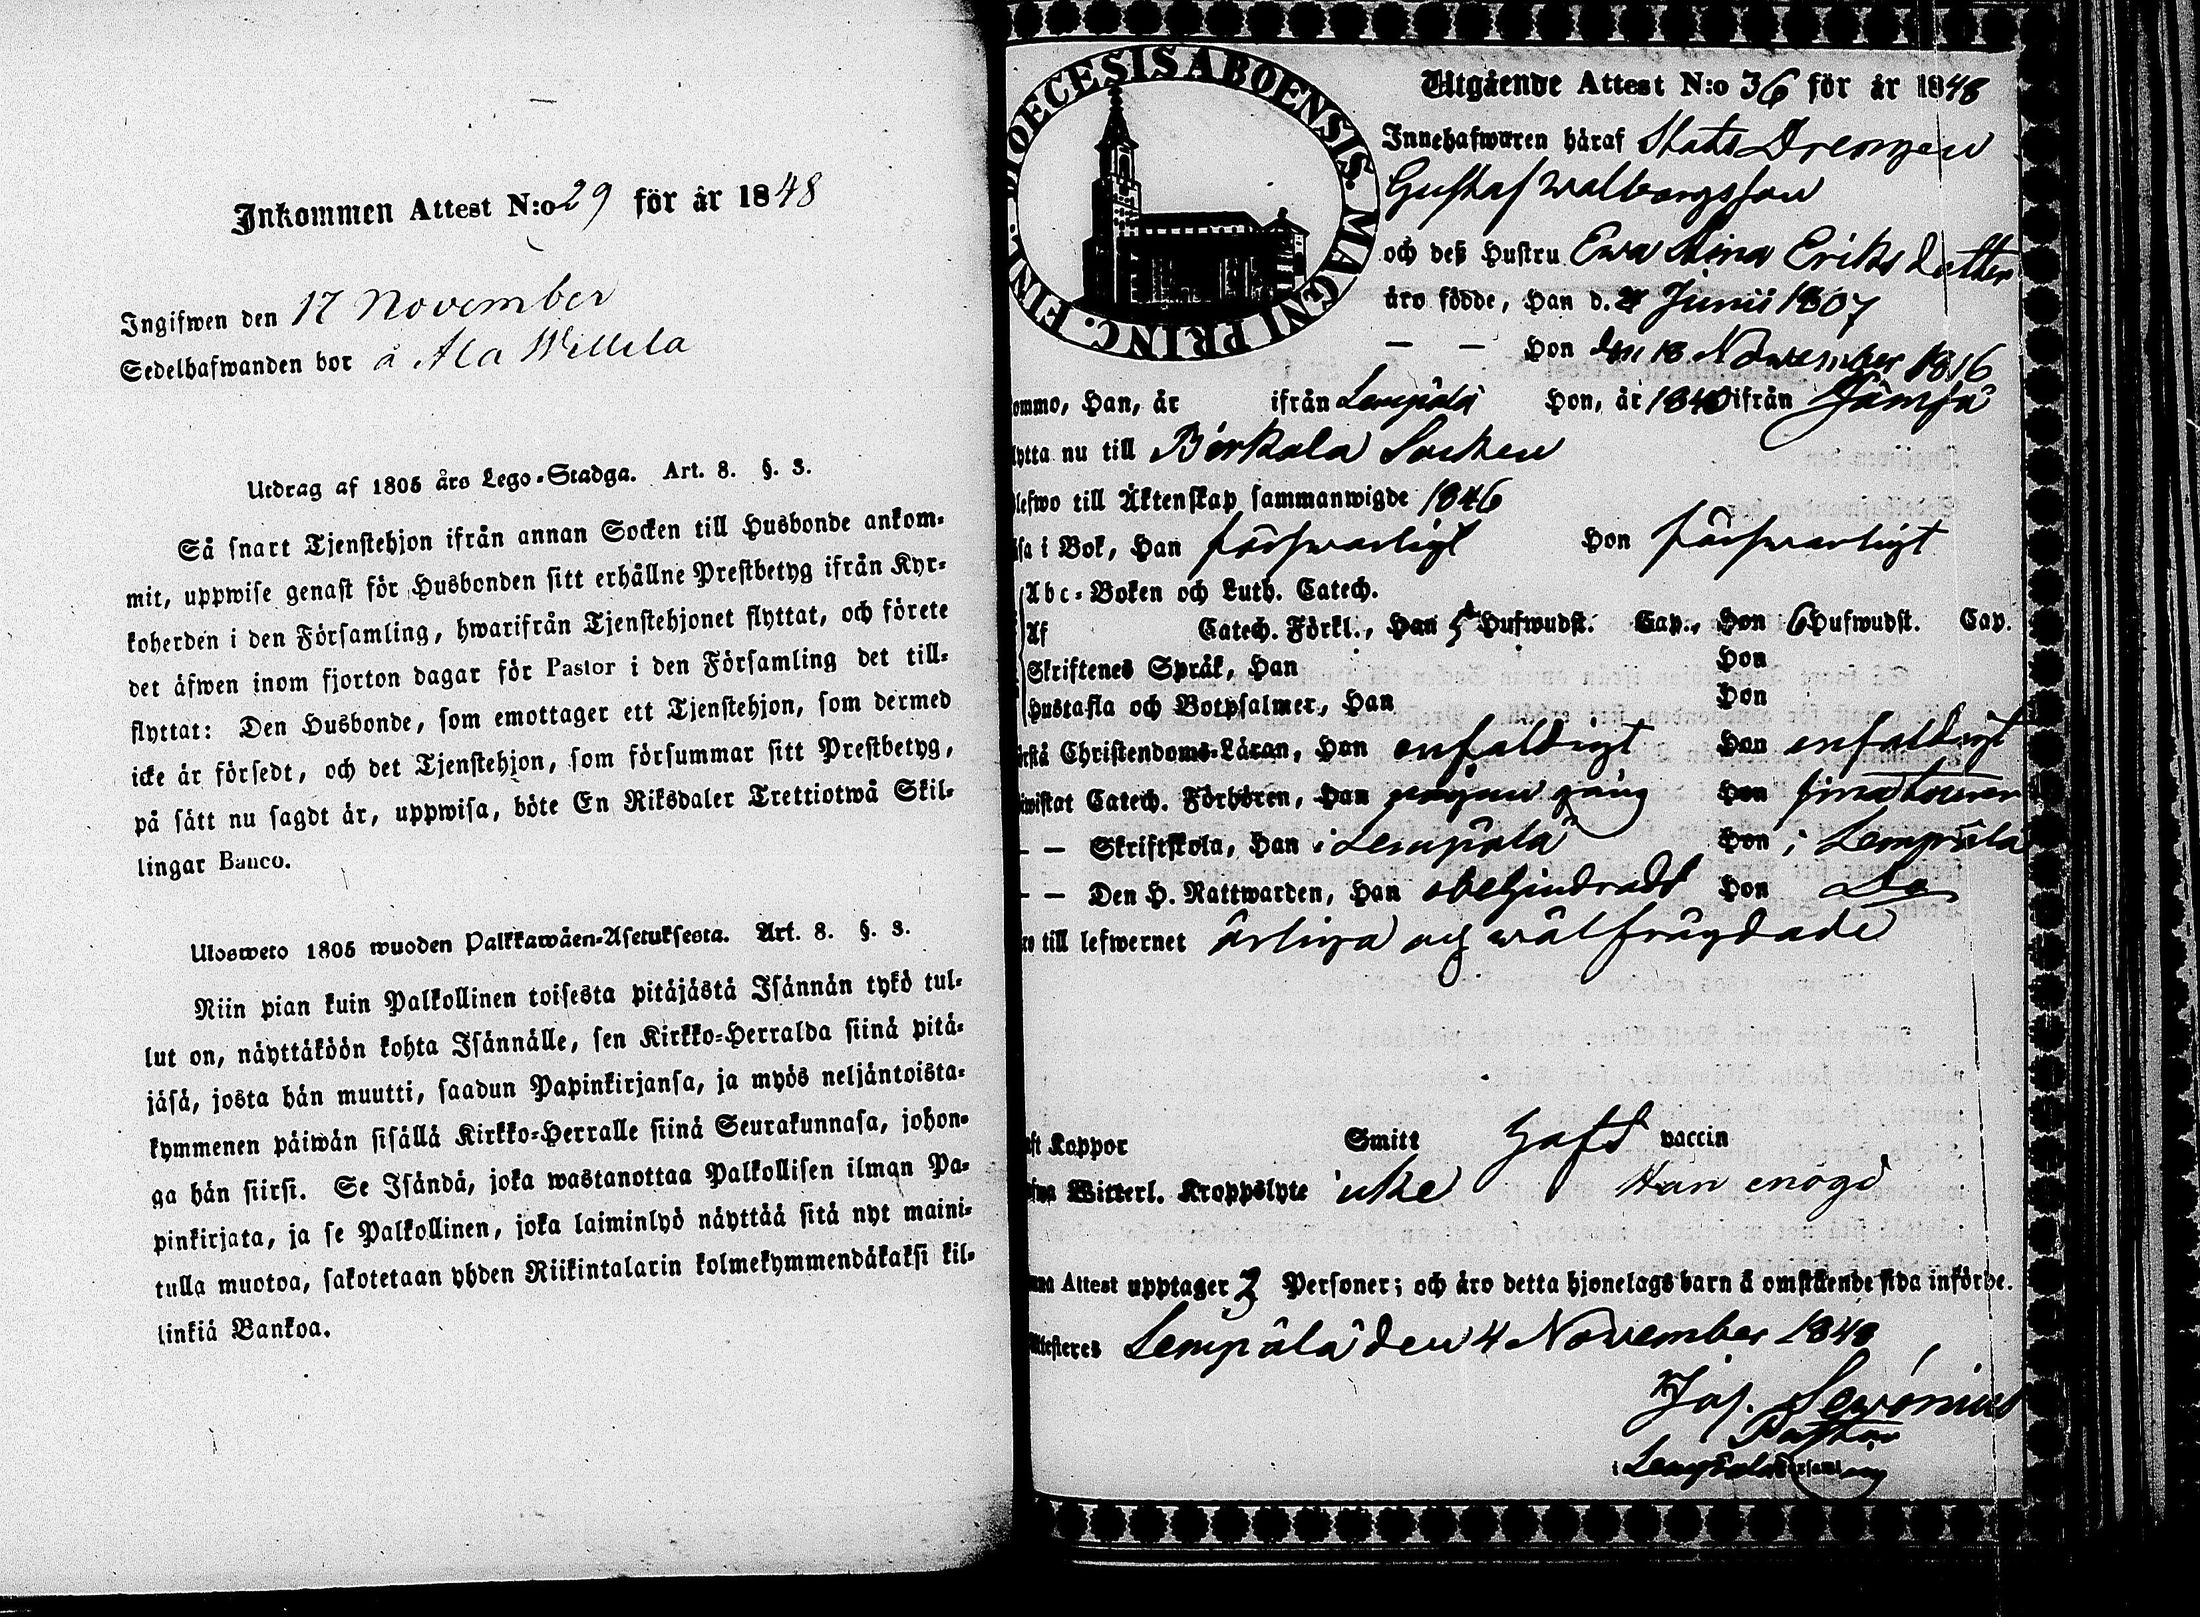 Inkommen Attest N:o 29 för år 1848
Ingifwen den 17 November
Sedelhafwanden bor å Ala Willila
Utdrag af 1805 års Lego-Stadga. Art. 8. §. 3.
Så snart Tjenstehjon ifrån annan Socken till Husbonde ankom-
mit, uppwise genast för Husbonden sitt erhållne Prestbetyg ifrån Kyr-
koherden i den Församling, hwarifrån Tjenstehjonet flyttat, och förete
det äfwen inom fjorton dagar för Pastor i den Församling det till-
flyttat: Den Husbonde, som emottager ett Tjenstehjon, som dermed
icke är försedt, och det Tjenstehjon, som försummar sitt Prestbetyg,
på sätt nu sagdt är, uppwisa, böte En Riksdaler Trettiotwå Skil-
lingar Banco.
Ulosweto 1805 wuoden Palkkawäen-Asetuksesta. Art. 8. §. 3.
Niin pian kuin Palkollinen toisesta pitäjästä Isännän tykö tul-
lut on, näyttäköön kohta Isännälle, sen Kirkko-Herralda siinä pitä-
jäsä, josta hän muutti, saadun Papinkirjansa, ja myös neljäntoista-
kymmenen päiwän sisällä Kirkko-Herralle siinä Seurakunnasa, johon-
ga hän siirsi. Se Isändä, joka wastanottaa Palkollisen ilman Pa-
pinkirjata, ja se Palkollinen, joka laiminlyö näyttää sitä nyt maini-
tulla muotoa, sakotetaan yhden Riikintalarin kolmekymmendäkaksi kil-
linkiä Bankoa.
DIOECESIS ABOENSIS. MAGNI PRINC. FINL.
Utgående Attest N:o 36 för år 1848
Innehafwaren häraf Stats Drengen
Gustaf Walborgsson
och deß Hustru Ewa Stina Eriksdotter
äro födde, Han d. Junii 1807
— — Hon den 18 November 1816
ommo, Han, år ifrån Lempälä Hon, år 1840 ifrån Jämsä
lytta nu till Birkala Socken
blefwo till Äktenskap sammanwigde 1846
äsa i Bok, Han försvarligt Hon försvarligt
Abc-Boken och Luth. Catech.
Af Catech. Förkl., Han 5 Hufwudst. Cap., Hon 6 Hufwudst. Cap.
Skriftenes Språk, Han Hon
Hustafla och Botpsalmer, Han Hon
örstå Christendoms-Läran, Han enfaldigt Hon enfaldigt
iwistat Catech. Förhören, Han någon gång Hon
— — Skriftskola, Han i Lempälä Hon i Lempälä
— — Den H. Nattwarden, Han obehindradt Hon Do
äro till lefwernet ärliga och wälfrägdade
aft Koppor Smitt Haft vaccin
afwa Witterl. Kroppslyte icke Han enögd
enna Attest upptager 2 Personer; och äro detta hjonelags barn å omstående sida införde.
Attesteres Lempälä den 4 November 1848
Jos. Sewonius
Pastor
i Lempälä Församling